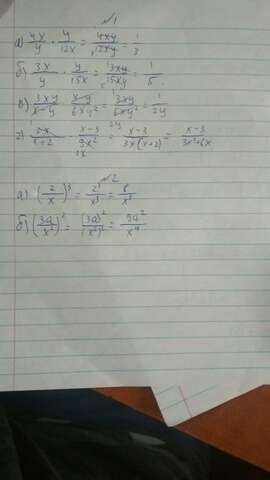 №1
а) 4x/y · y/12x = 4xy/12xy = 1/3
б) 3x/y · y/15x = 3xy/15xy = 1/5
в) 3xy/x-y · x-y/6xy² = 3xy/6xy² = 1/2y
г) x-3/9x² = x-3/3x(x+2) = x-3/3x²+6x
№2
а) (2/x)³ = 2³/x³ = 8/x³
б) (3a/x²)² = (3a)²/(x²)² = 9a²/x⁴